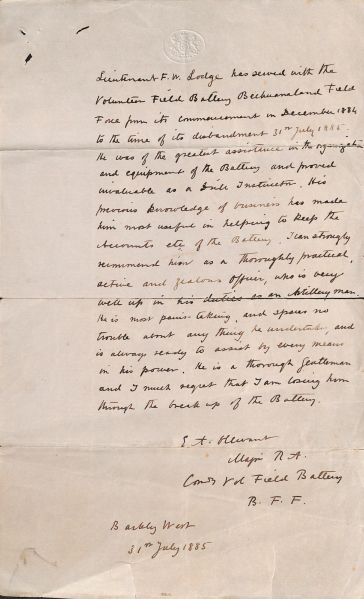 Lieutenant F. W. Lodge has served with the
Volunteer Field Battery Bechuanaland Field
Force from its commencement in December 1884
to the time of its disbandment 31st July 1885.
He was of the greatest assistance in the organization
and equipment of the Battery and proved
invaluable as a Drill Instructor. His
previous knowledge of business has made
him most useful in helping to keep the
Accounts etc of the Battery. I can strongly
recommend him as a thoroughly practical,
active and zealous officer, who is very
well up in his duties as an Artillery man.
He is most pains-taking, and spares no
trouble about any thing he undertakes, and
is always ready to assist by every means
in his power. He is a thorough Gentleman
and I much regret that I am losing him
through the break up of the Battery.
E. A.
Major R A.
Comdg Vol Field Battery
B. F. F.
Barkly West
31st July 1885